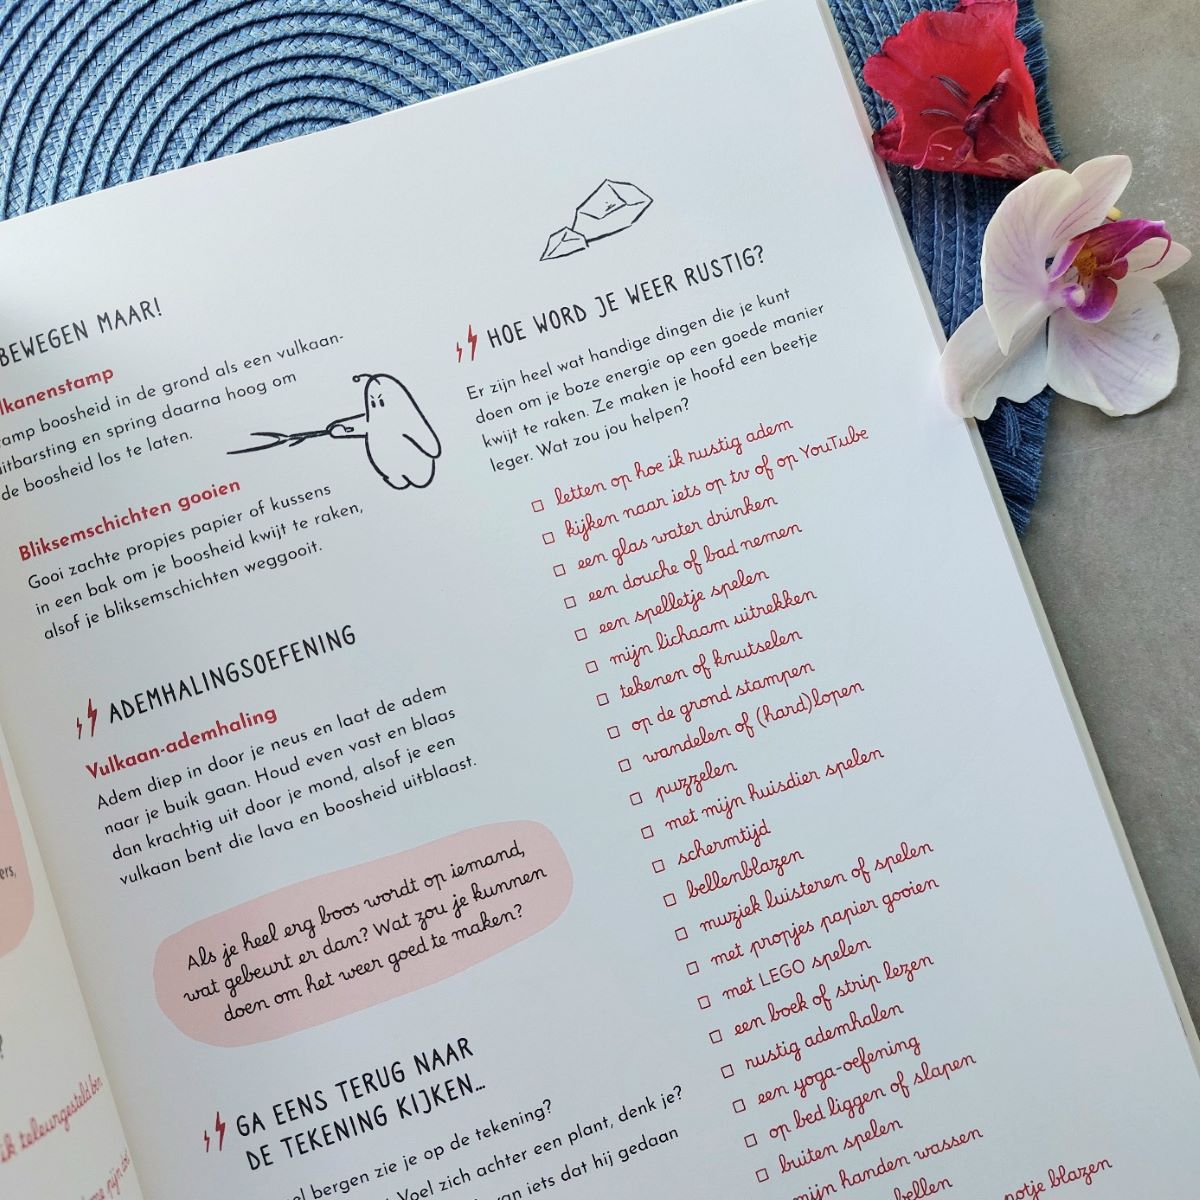 BEWEGEN MAAR!
lkanenstamp
amp boosheid in de grond als een vulkaan-
itbarsting en spring daarna hoog om
de boosheid los te laten.
Bliksemschichten gooien
Gooi zachte propjes papier of kussens
in een bak om je boosheid kwijt te raken,
alsof je bliksemschichten weggooit.
ADEMHALINGSOEFENING
Vulkaan-ademhaling
Adem diep in door je neus en laat de adem
naar je buik gaan. Houd even vast en blaas
dan krachtig uit door je mond, alsof je een
vulkaan bent die lava en boosheid uitblaast.
Als je heel erg boos wordt op iemand,
wat gebeurt er dan? Wat zou je kunnen
doen om het weer goed te maken?
GA EENS TERUG NAAR
DE TEKENING KIJKEN...
el bergen zie je op de tekening?
Voel zich achter een plant, denk je?
van iets dat hij gedaan
HOE WORD JE WEER RUSTIG?
Er zijn heel wat handige dingen die je kunt
doen om je boze energie op een goede manier
kwijt te raken. Ze maken je hoofd een beetje
leger. Wat zou jou helpen?
letten op hoe ik rustig adem
kijken naar iets op tv of op YouTube
een glas water drinken
een douche of bad nemen
een spelletje spelen
mijn lichaam uitrekken
tekenen of knutselen
op de grond stampen
wandelen of (hard)lopen
puzzelen
met mijn huisdier spelen
schermtijd
bellenblazen
muziek luisteren of spelen
met propjes papier gooien
met LEGO spelen
een boek of strip lezen
rustig ademhalen
een yoga-oefening
op bed liggen of slapen
buiten spelen
mijn handen wassen
bellen
potje blazen
ers,
?
ik teleurgesteld ben